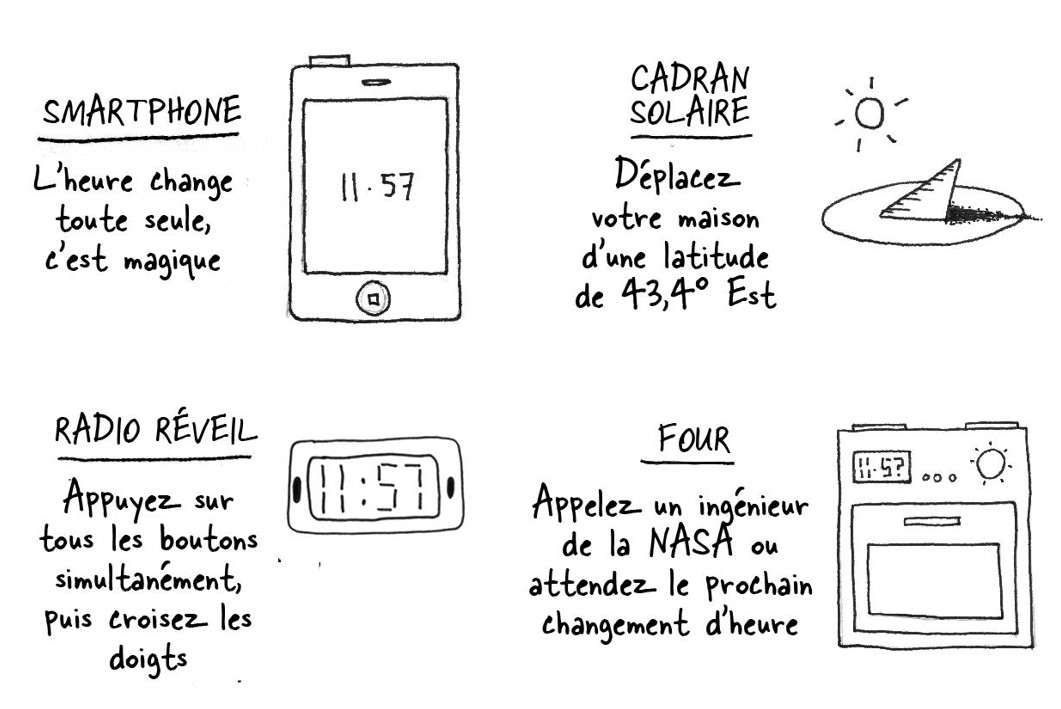 SMARTPHONE
L'heure change
toute seule,
c'est magique
11.57
CADRAN
SOLAIRE
Déplacez
votre maison
d'une latitude
de 43,4° Est
RADIO RÉVEIL
Appuyez sur
tous les boutons
simultanément,
puis croisez les
doigts
11:57
FOUR
Appelez un ingénieur
de la NASA ou
attendez le prochain
changement d'heure
11:57